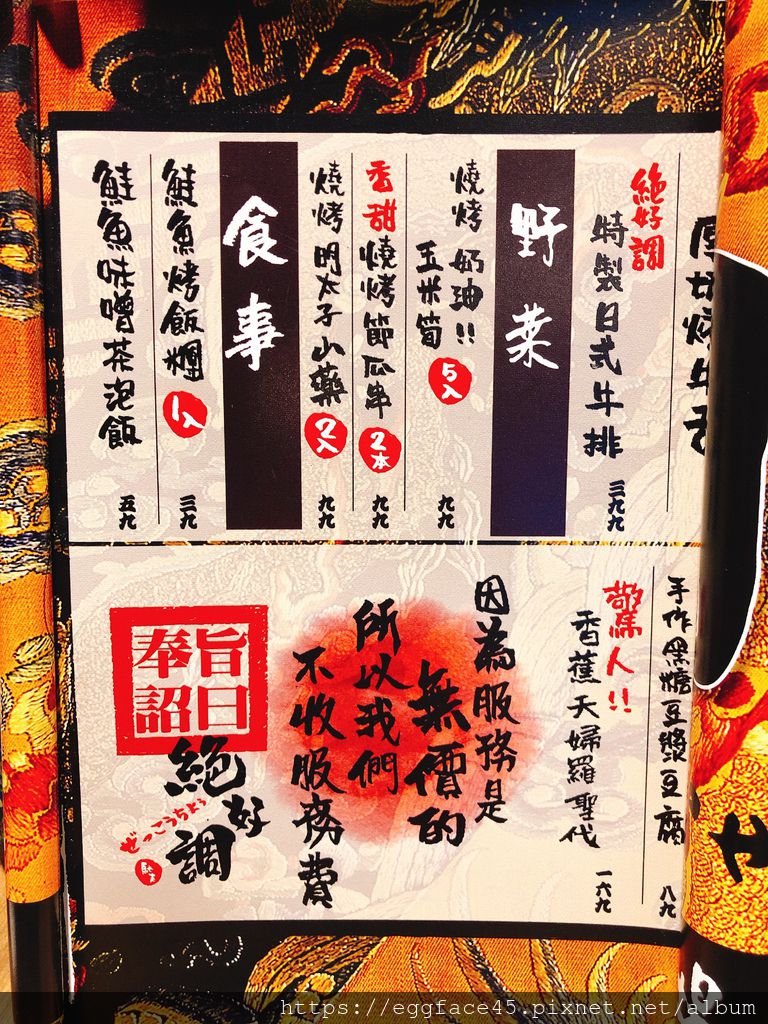 厚切燒牛舌
絶好調
特製日式牛排
三九九
野菜
燒烤奶油!!
玉米筍
5入
九九
香甜燒烤節瓜串
2本
九九
燒烤明太子山藥
2入
九九
食事
鮭魚烤飯糰
1入
三九
鮭魚味噌茶泡飯
五九
手作黑糖豆漿豆腐
八九
驚人!!
香蕉天婦羅聖代
一六九
因為服務是
無價的
所以我們
不收服務費
旨曰
奉詔
絶好調
ぜっこうちょう
https://eggface45.pixnet.net/album